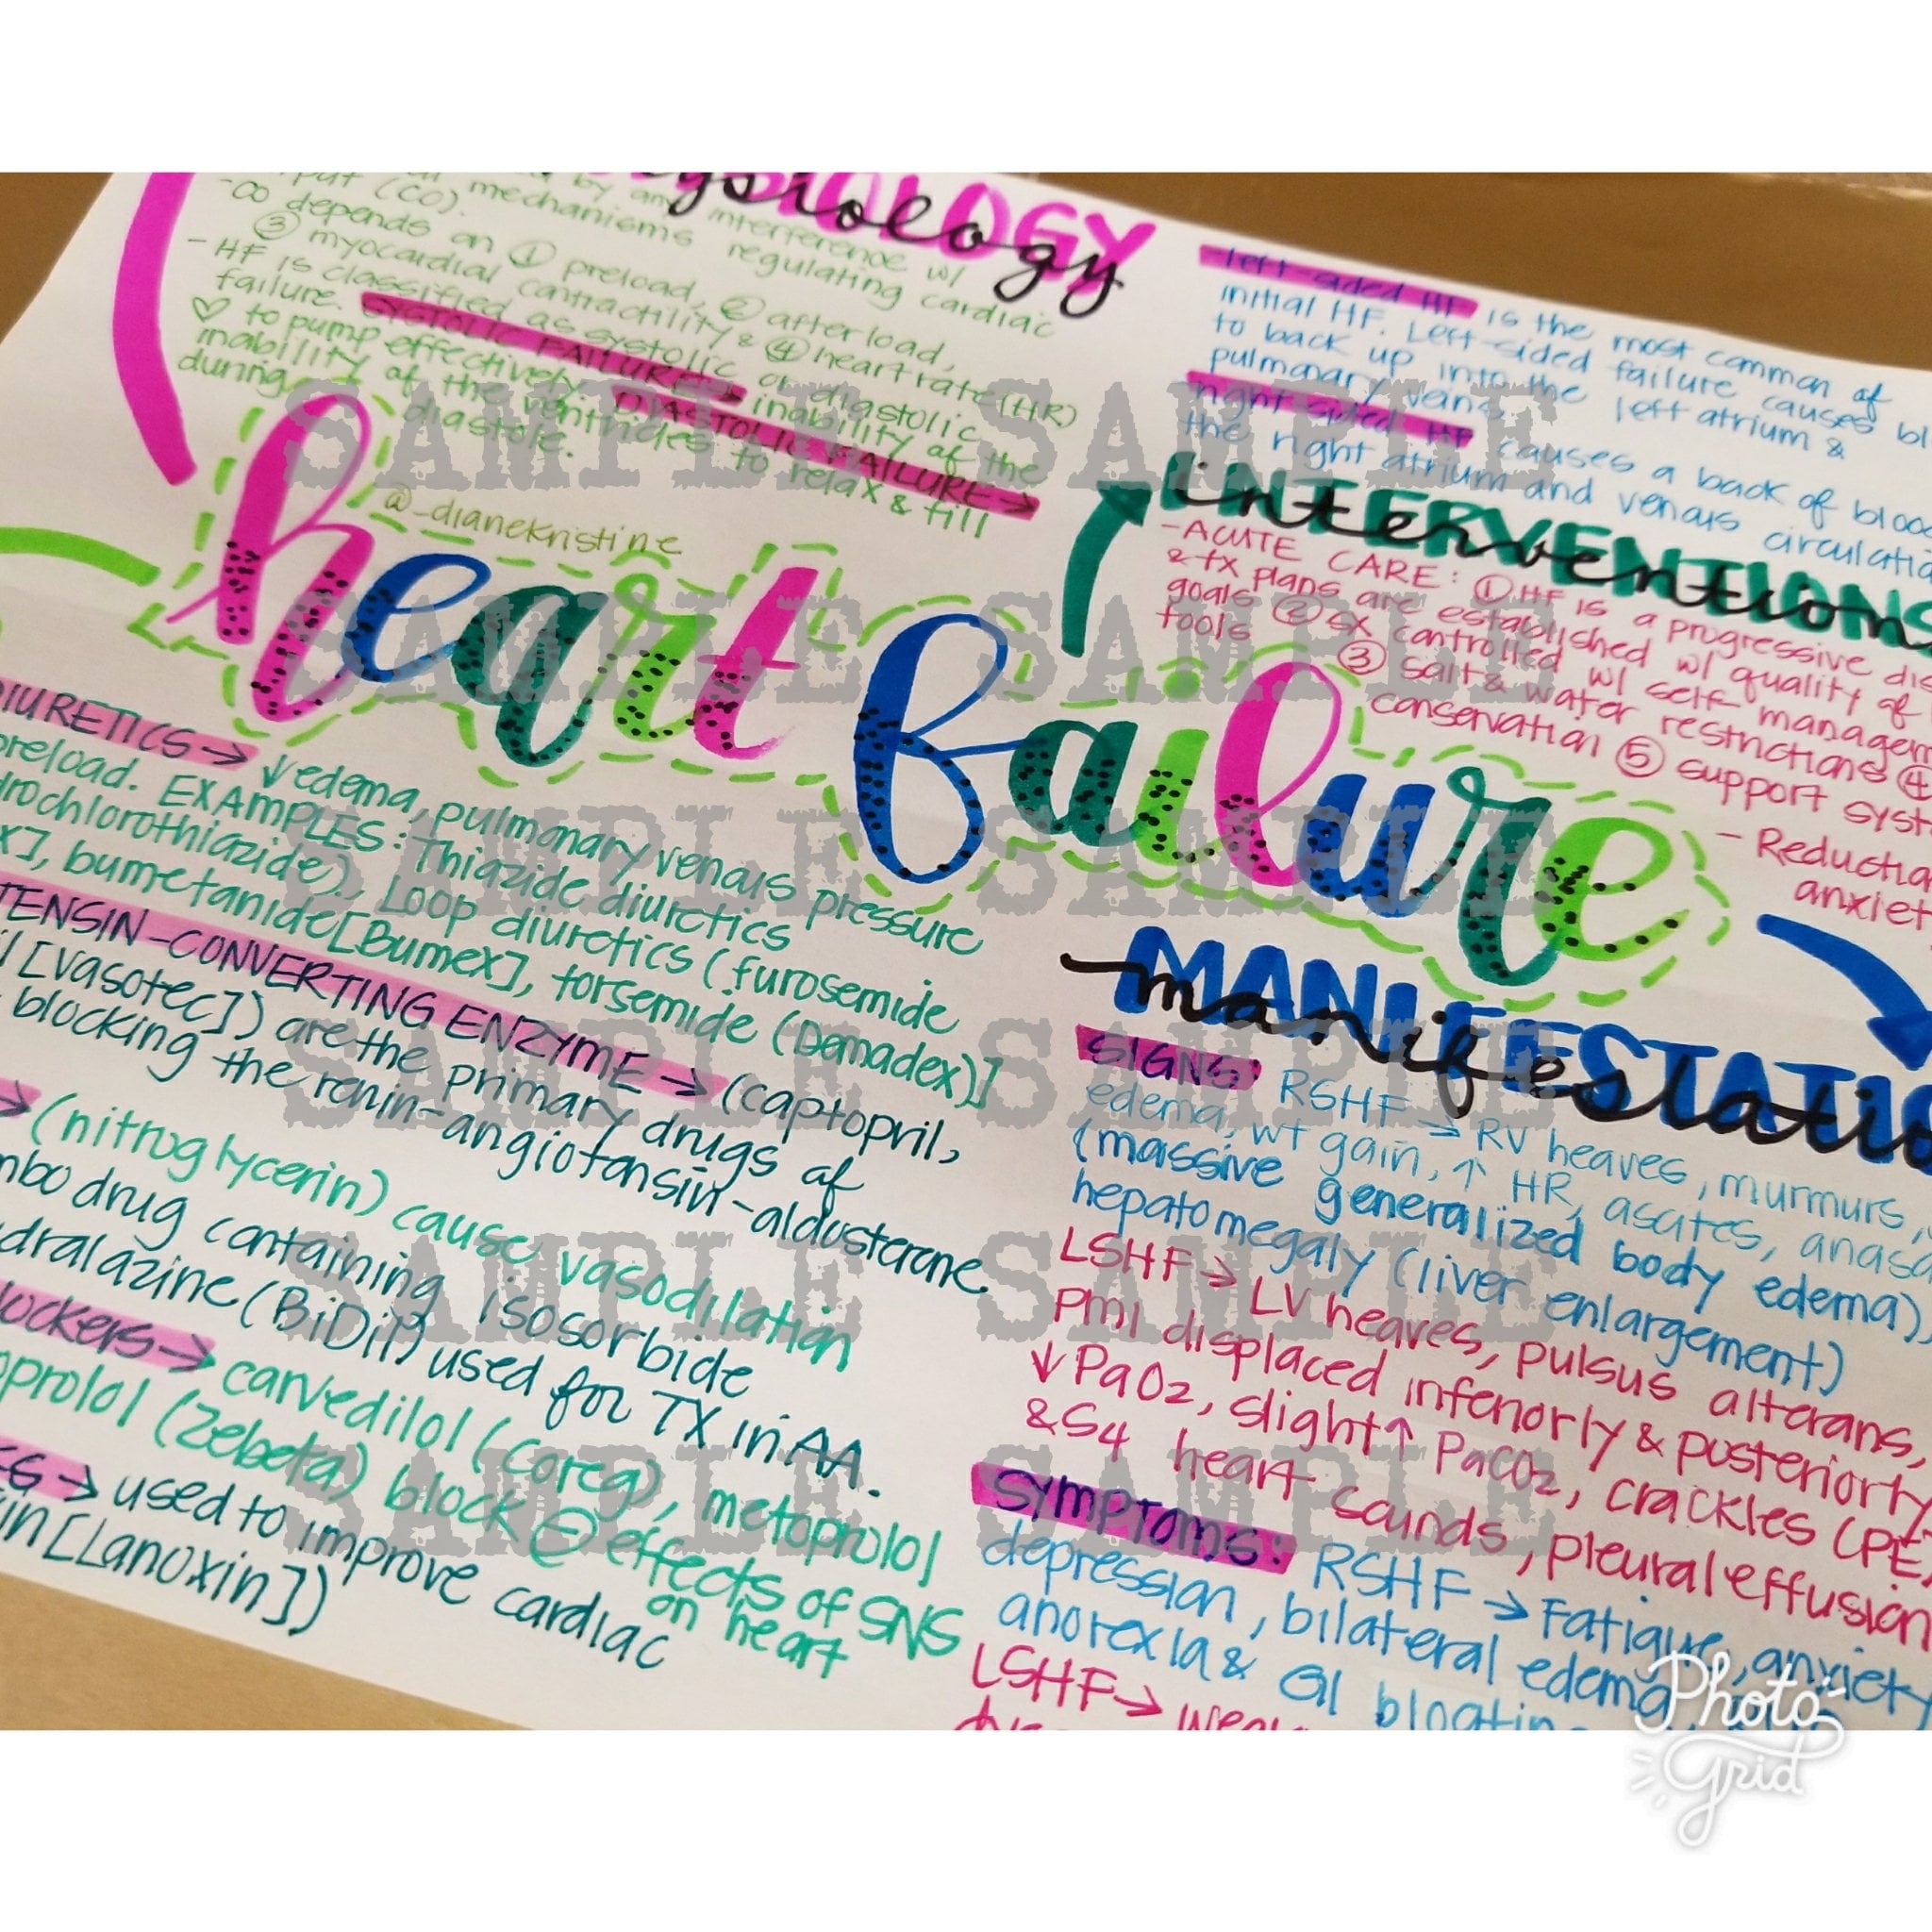 PHYSIOLOGY
physiology
by any interference w/
mechanisms regulating cardiac
(CO).
-CO depends on ① preload, ② afterload,
③ myocardial contractility & ④ heart rate (HR)
- HF is classified as systolic or diastolic
failure. SYSTOLIC FAILURE → inability of the
♡ to pump effectively. DIASTOLIC FAILURE →
inability of the ventricles to relax & fill
during diastole.
@_dianekristine
heart failure
left-sided HF is the most common of
initial HF. Left-sided failure causes bl
to back up into the left atrium &
pulmonary veins.
right sided HF causes a back of bloo
the right atrium and venous circulati
INTERVENTIONS
interventions
- ACUTE CARE: ① HF is a progressive dis
& tx plans are established w/ quality of
goals ② sx controlled w/ self-managem
tools ③ salt & water restrictions ④
conservation ⑤ support syst
- Reductio
anxiet
DIURETICS → ↓ edema, pulmonary venous pressure
preload. EXAMPLES: Thiazide diuretics
drochlorothiazide), Loop diuretics (furosemide
x], bumetanide [Bumex], torsemide (Demadex)]
TENSIN-CONVERTING ENZYME → (captopril,
il [vasotec]) are the primary drugs of
blocking the renin-angiotensin-aldosterone.
→ (nitroglycerin) cause vasodilation
mbo drug containing isosorbide
dralazine (BiDil) used for TX in AA.
lockers → carvedilol (Coreg), metoprolol
oprolol (Zebeta) block ⊖ effects of SNS
on heart
→ used to improve cardiac
in [Lanoxin])
MANIFESTATIO
manifestatio
SIGNS: RSHF → RV heaves, murmurs,
edema, wt gain, ↑ HR, ascites, anasa
(massive generalized body edema),
hepatomegaly (liver enlargement)
LSHF → LV heaves, pulsus alterans,
PMI displaced inferiorly & posteriorly,
↓ PaO2, slight ↑ PaCO2, crackles (PE)
& S4 heart sounds, pleural effusion
Symptoms: RSHF → Fatigue, anxiety
depression, bilateral edema,
anorexia & GI bloatin
LSHF →
SAMPLE SAMPLE
SAMPLE SAMPLE
SAMPLE SAMPLE
SAMPLE SAMPLE
SAMPLE SAMPLE
SAMPLE SAMPLE
Photo
Grid